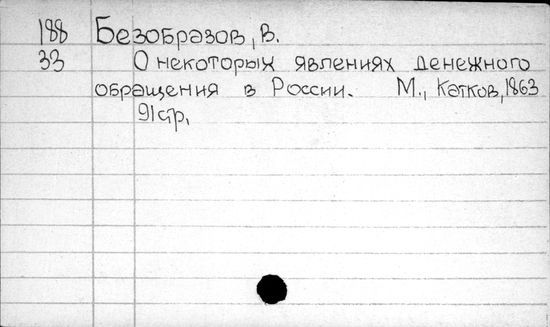 188 Безобразов, В.
33 О некоторых явлениях денежного
обращения в России. М., Катков, 1863
91 стр,